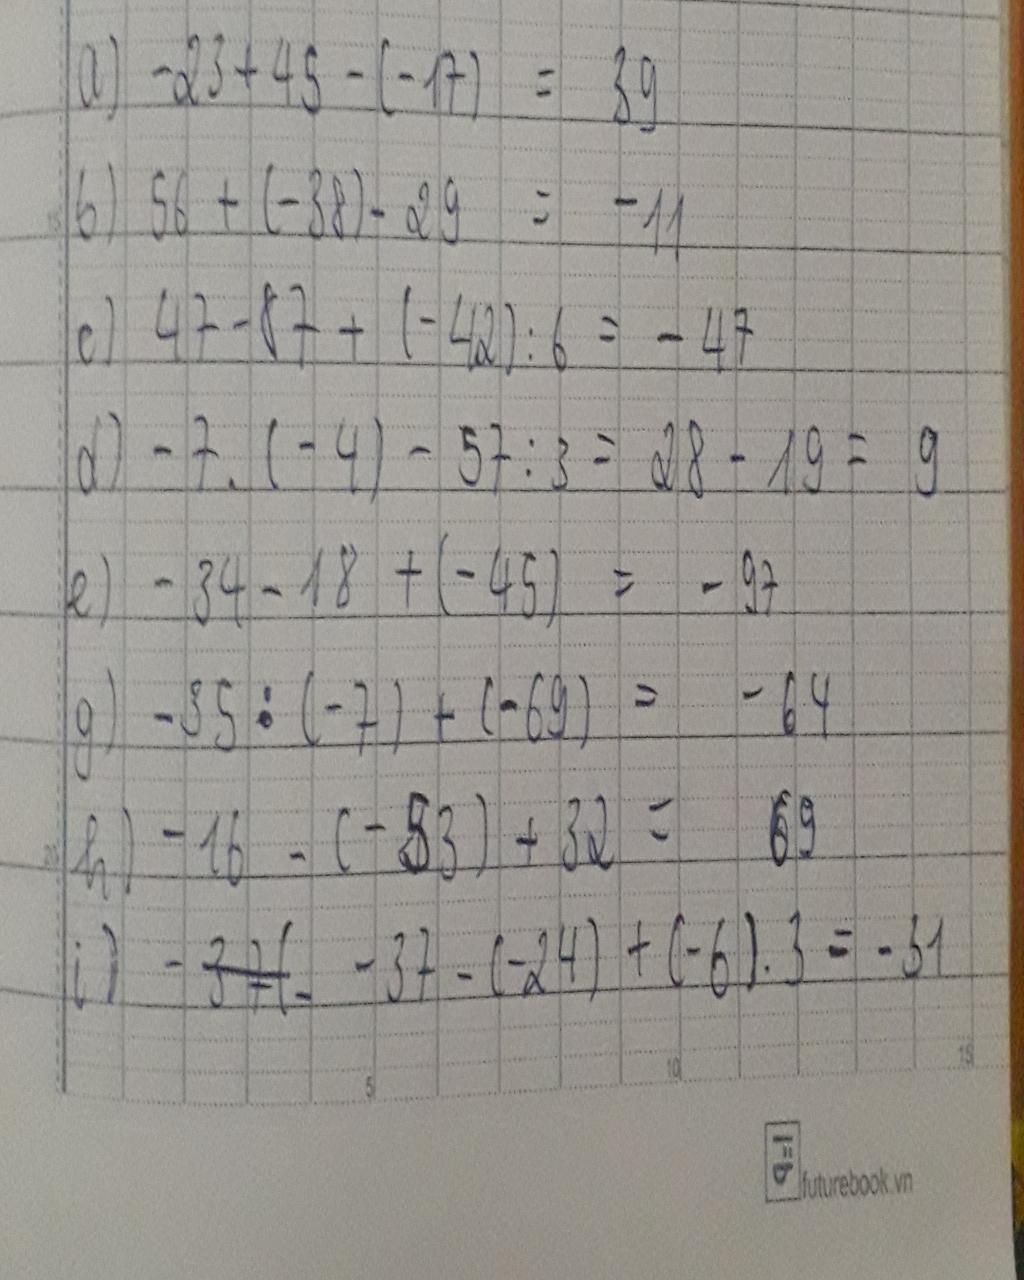 a) -23 + 45 - (-17) = 39
b) 56 + (-38) - 29 = -11
c) 47 - 87 + (-42) : 6 = -47
d) -7 . (-4) - 57 : 3 = 28 - 19 = 9
e) -34 - 18 + (-45) = -97
g) -35 : (-7) + (-69) = -64
h) -16 - (-53) + 32 = 69
i) - 37(- -37 - (-24) + (-6) . 3 = -31
5 10 15
futurebook.vn